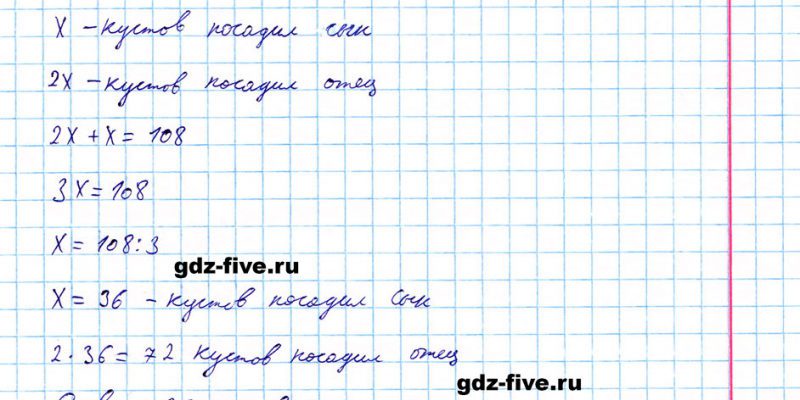 x – кустов посадил сын
2x – кустов посадил отец
2x + x = 108
3x = 108
x = 108 : 3
gdz-five.ru
x = 36 – кустов посадил сын
2 · 36 = 72 кустов посадил отец
gdz-five.ru